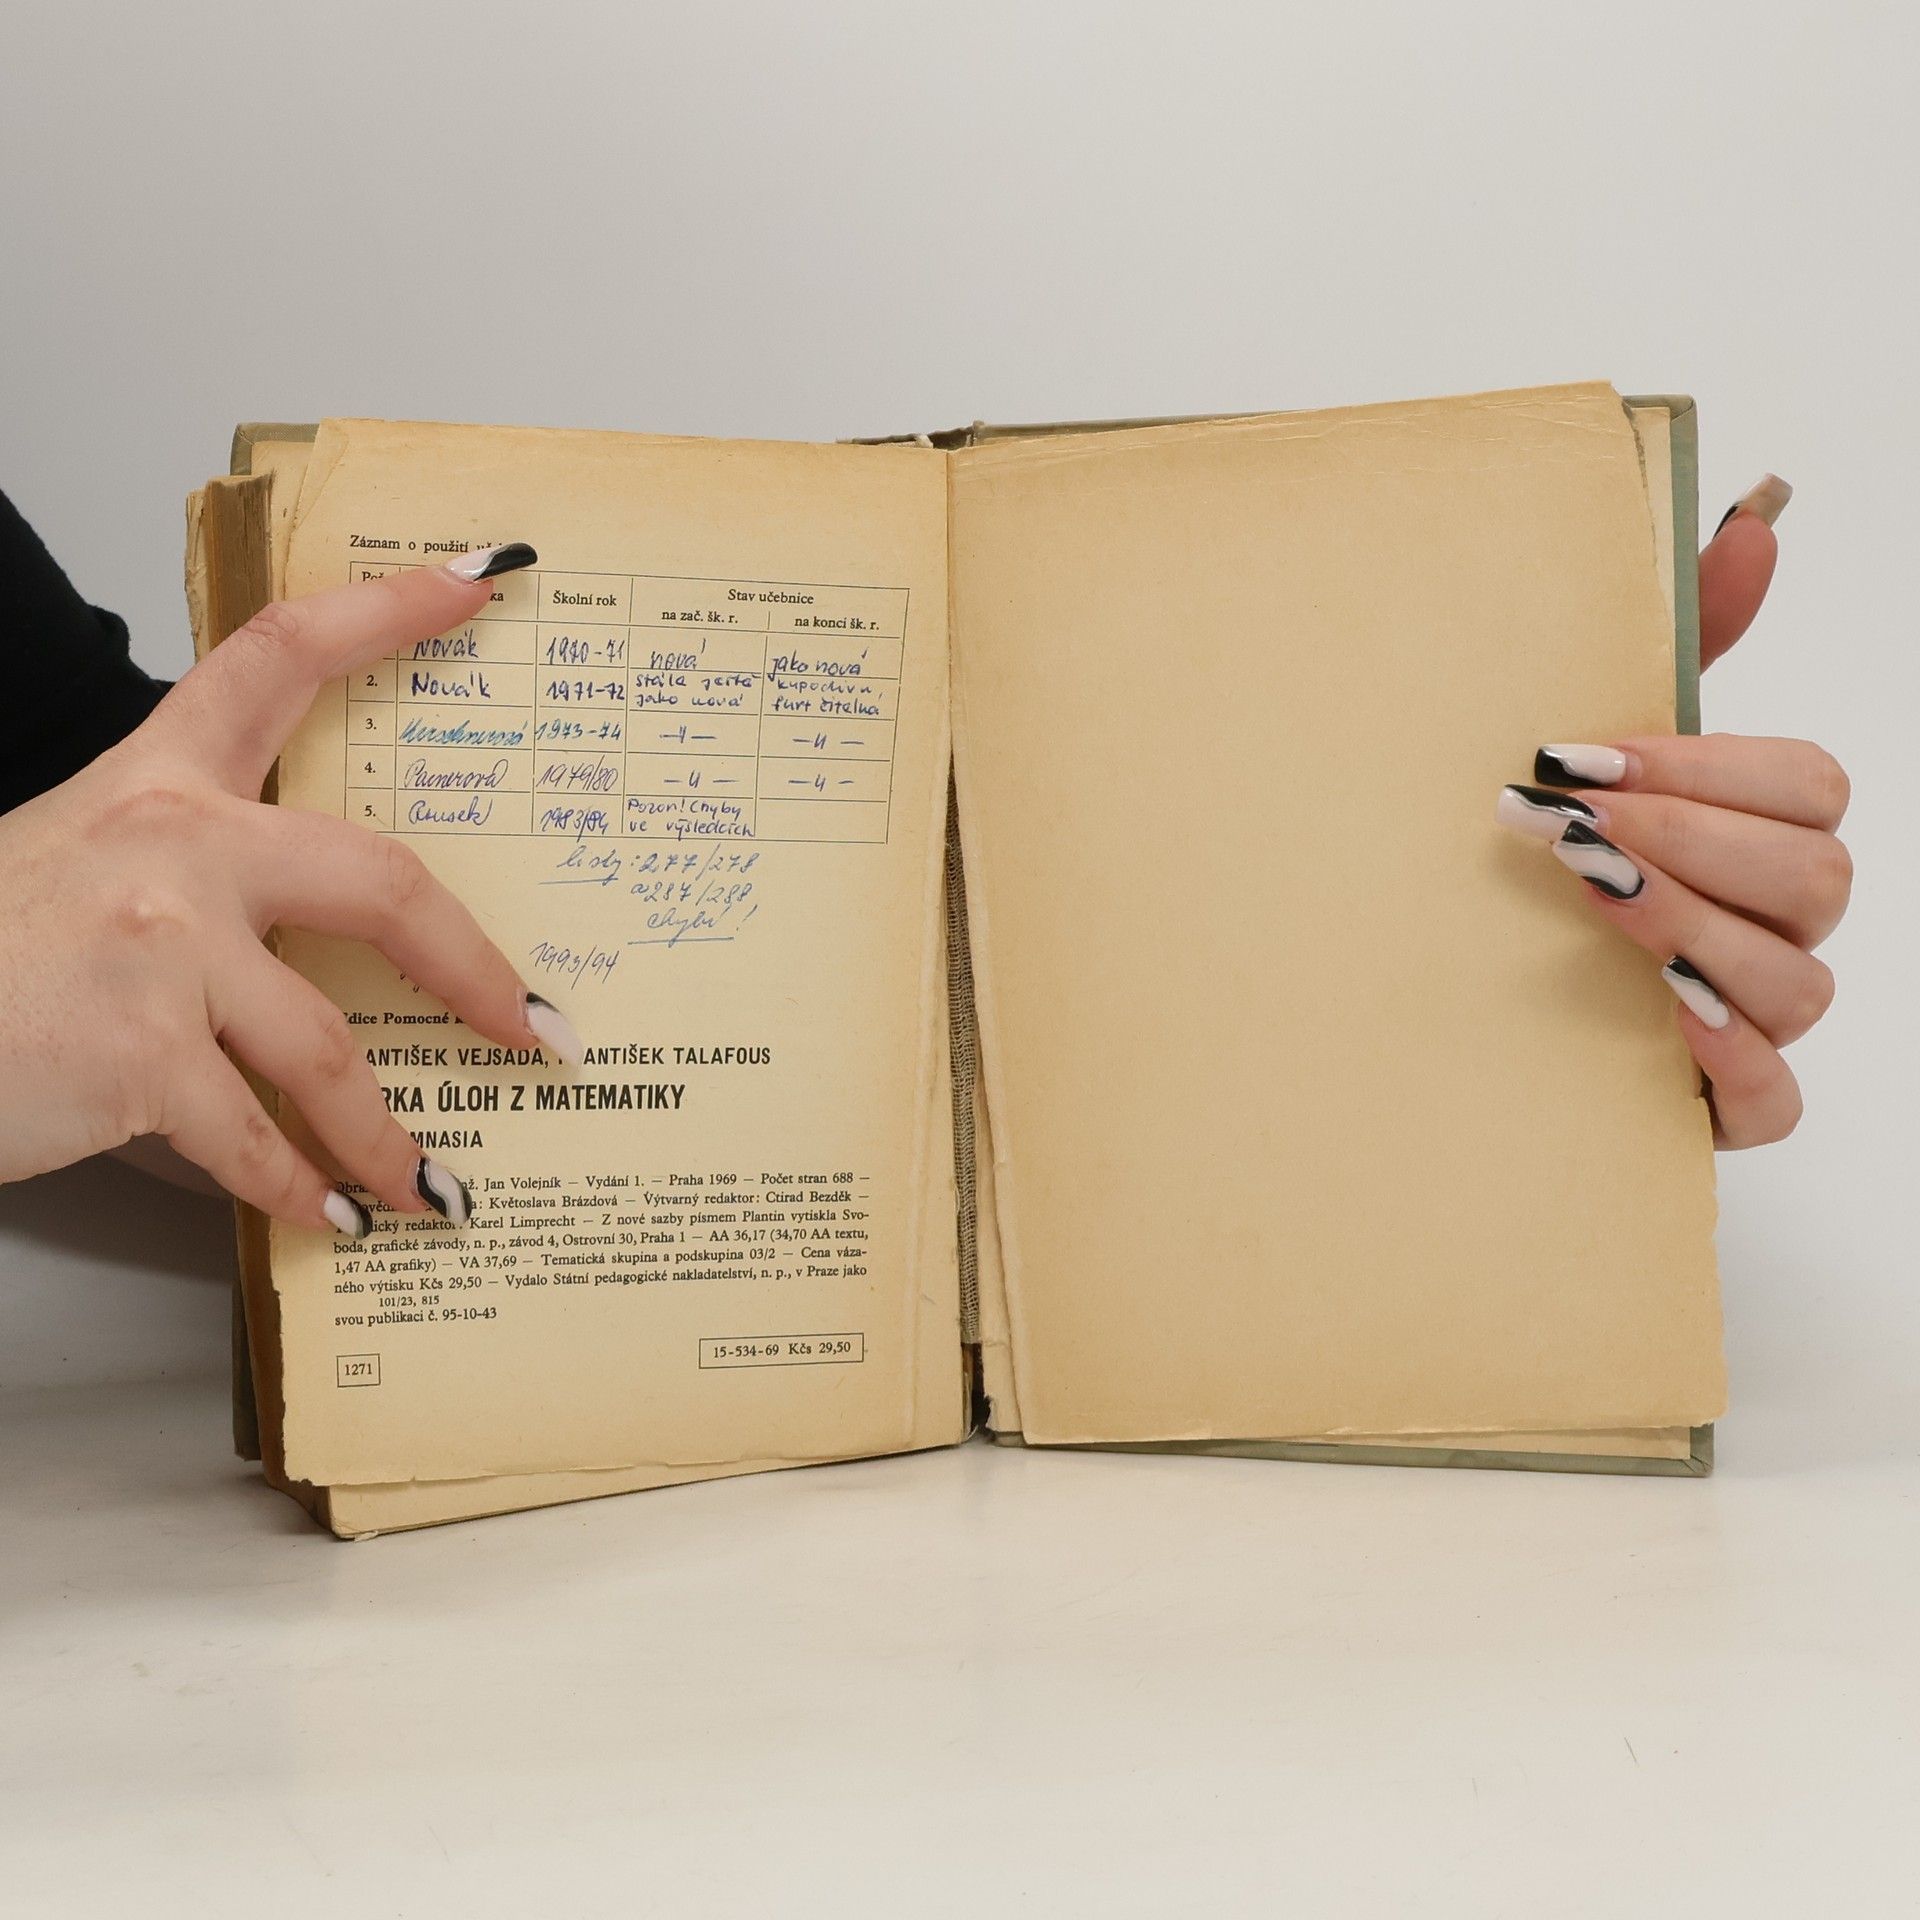 Záznam o použití
Školní rok
Stav učebnice
na zač. šk. r.
na konci šk. r.
Novák 1970-71 nová jako nová
2. Novák 1971-72 stále ještě jako nová kupodivu, furt čitelná
3. 1973-74 —〃— —〃—
4. 1979/80 —〃— —〃—
5. 1983/84 Pozor! Chyby ve výsledcích
listy: 277/278
a 287/288
chybí!
1993/94
Edice Pomocné
ANTIŠEK VEJSADA, ANTIŠEK TALAFOUS
RKA ÚLOH Z MATEMATIKY
MNASIA
Jan Volejník — Vydání 1. — Praha 1969 — Počet stran 688 —
: Květoslava Brázdová — Výtvarný redaktor: Ctirad Bezděk —
ický redaktor: Karel Limprecht — Z nové sazby písmem Plantin vytiskla Svo-
boda, grafické závody, n. p., závod 4, Ostrovní 30, Praha 1 — AA 36,17 (34,70 AA textu,
1,47 AA grafiky) — VA 37,69 — Tematická skupina a podskupina 03/2 — Cena váza-
ného výtisku Kčs 29,50 — Vydalo Státní pedagogické nakladatelství, n. p., v Praze jako
101/23, 815
svou publikaci č. 95-10-43
15-534-69 Kčs 29,50
1271